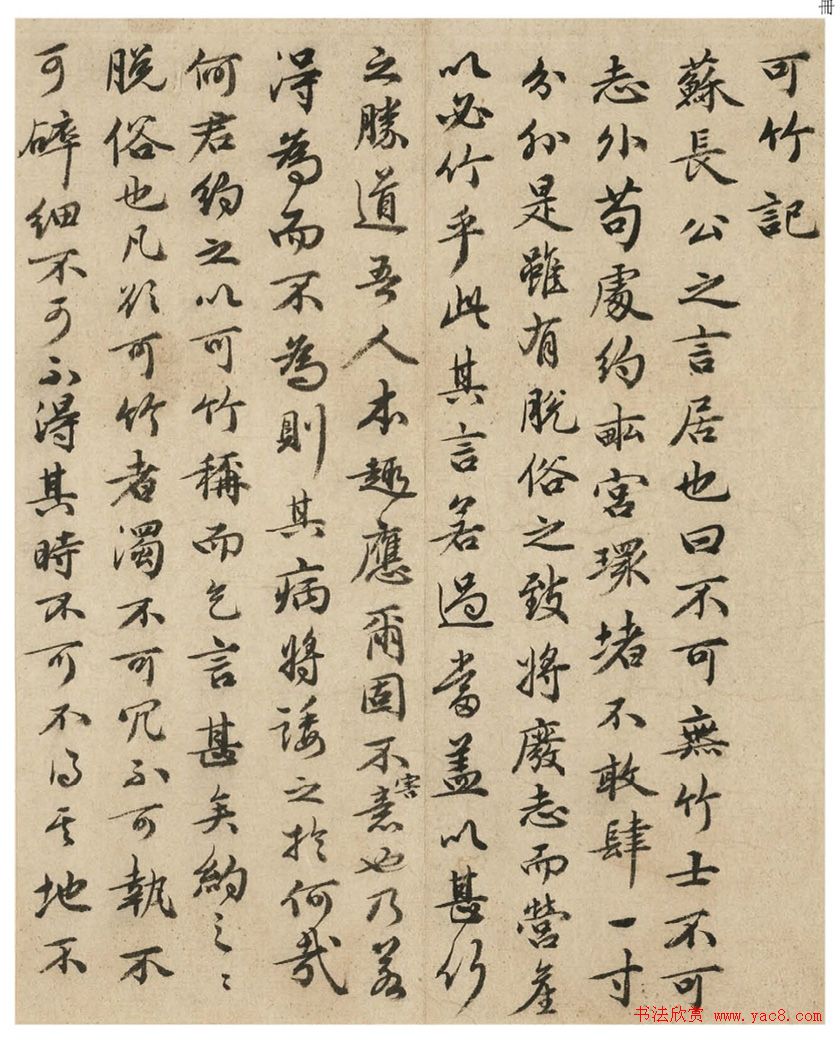 冊
可竹記
蘇長公之言居也曰不可無竹士不可
志外苟處約畝宮環堵不敢肆一寸
分外是雖有脫俗之致將廢志而營產
以必竹乎此其言若過當蓋以甚竹
之勝道吾人本趣應爾固不害意也乃若
得為而不為則其病將諉之於何哉
何君約之以可竹稱而乞言甚矣約之之
脫俗也凡欲可竹者濁不可冗不可執不
可碎細不可不得其時不可不得其地不
书法欣赏 www.yac8.com